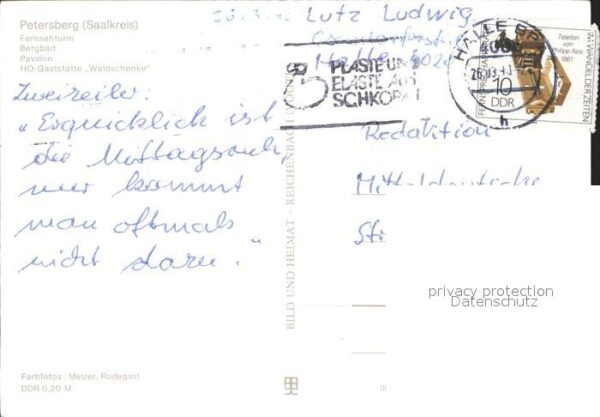 Petersberg (Saalkreis)
Fernsehturm
Bergbad
Pavillon
HO-Gaststätte „Waldschenke"
Zweizeiler:
"Erquicklich ist
die Mittagsruh,
nur kommt
man oftmals
nicht dazu."
Farbfotos: Melzer, Radegast
DDR 0,20 M
BILD UND HEIMAT · REICHENBACH
Lutz Ludwig,
Halle 402
PLASTE UN
ELASTE AUS
SCHKOPA
HALLE
10
DDR
h
Telefon
von
Philipp Reis
1861
IM WANDEL DER ZEITEN
Redaktion
Mitteldeutsche
Sti
privacy protection
Datenschutz